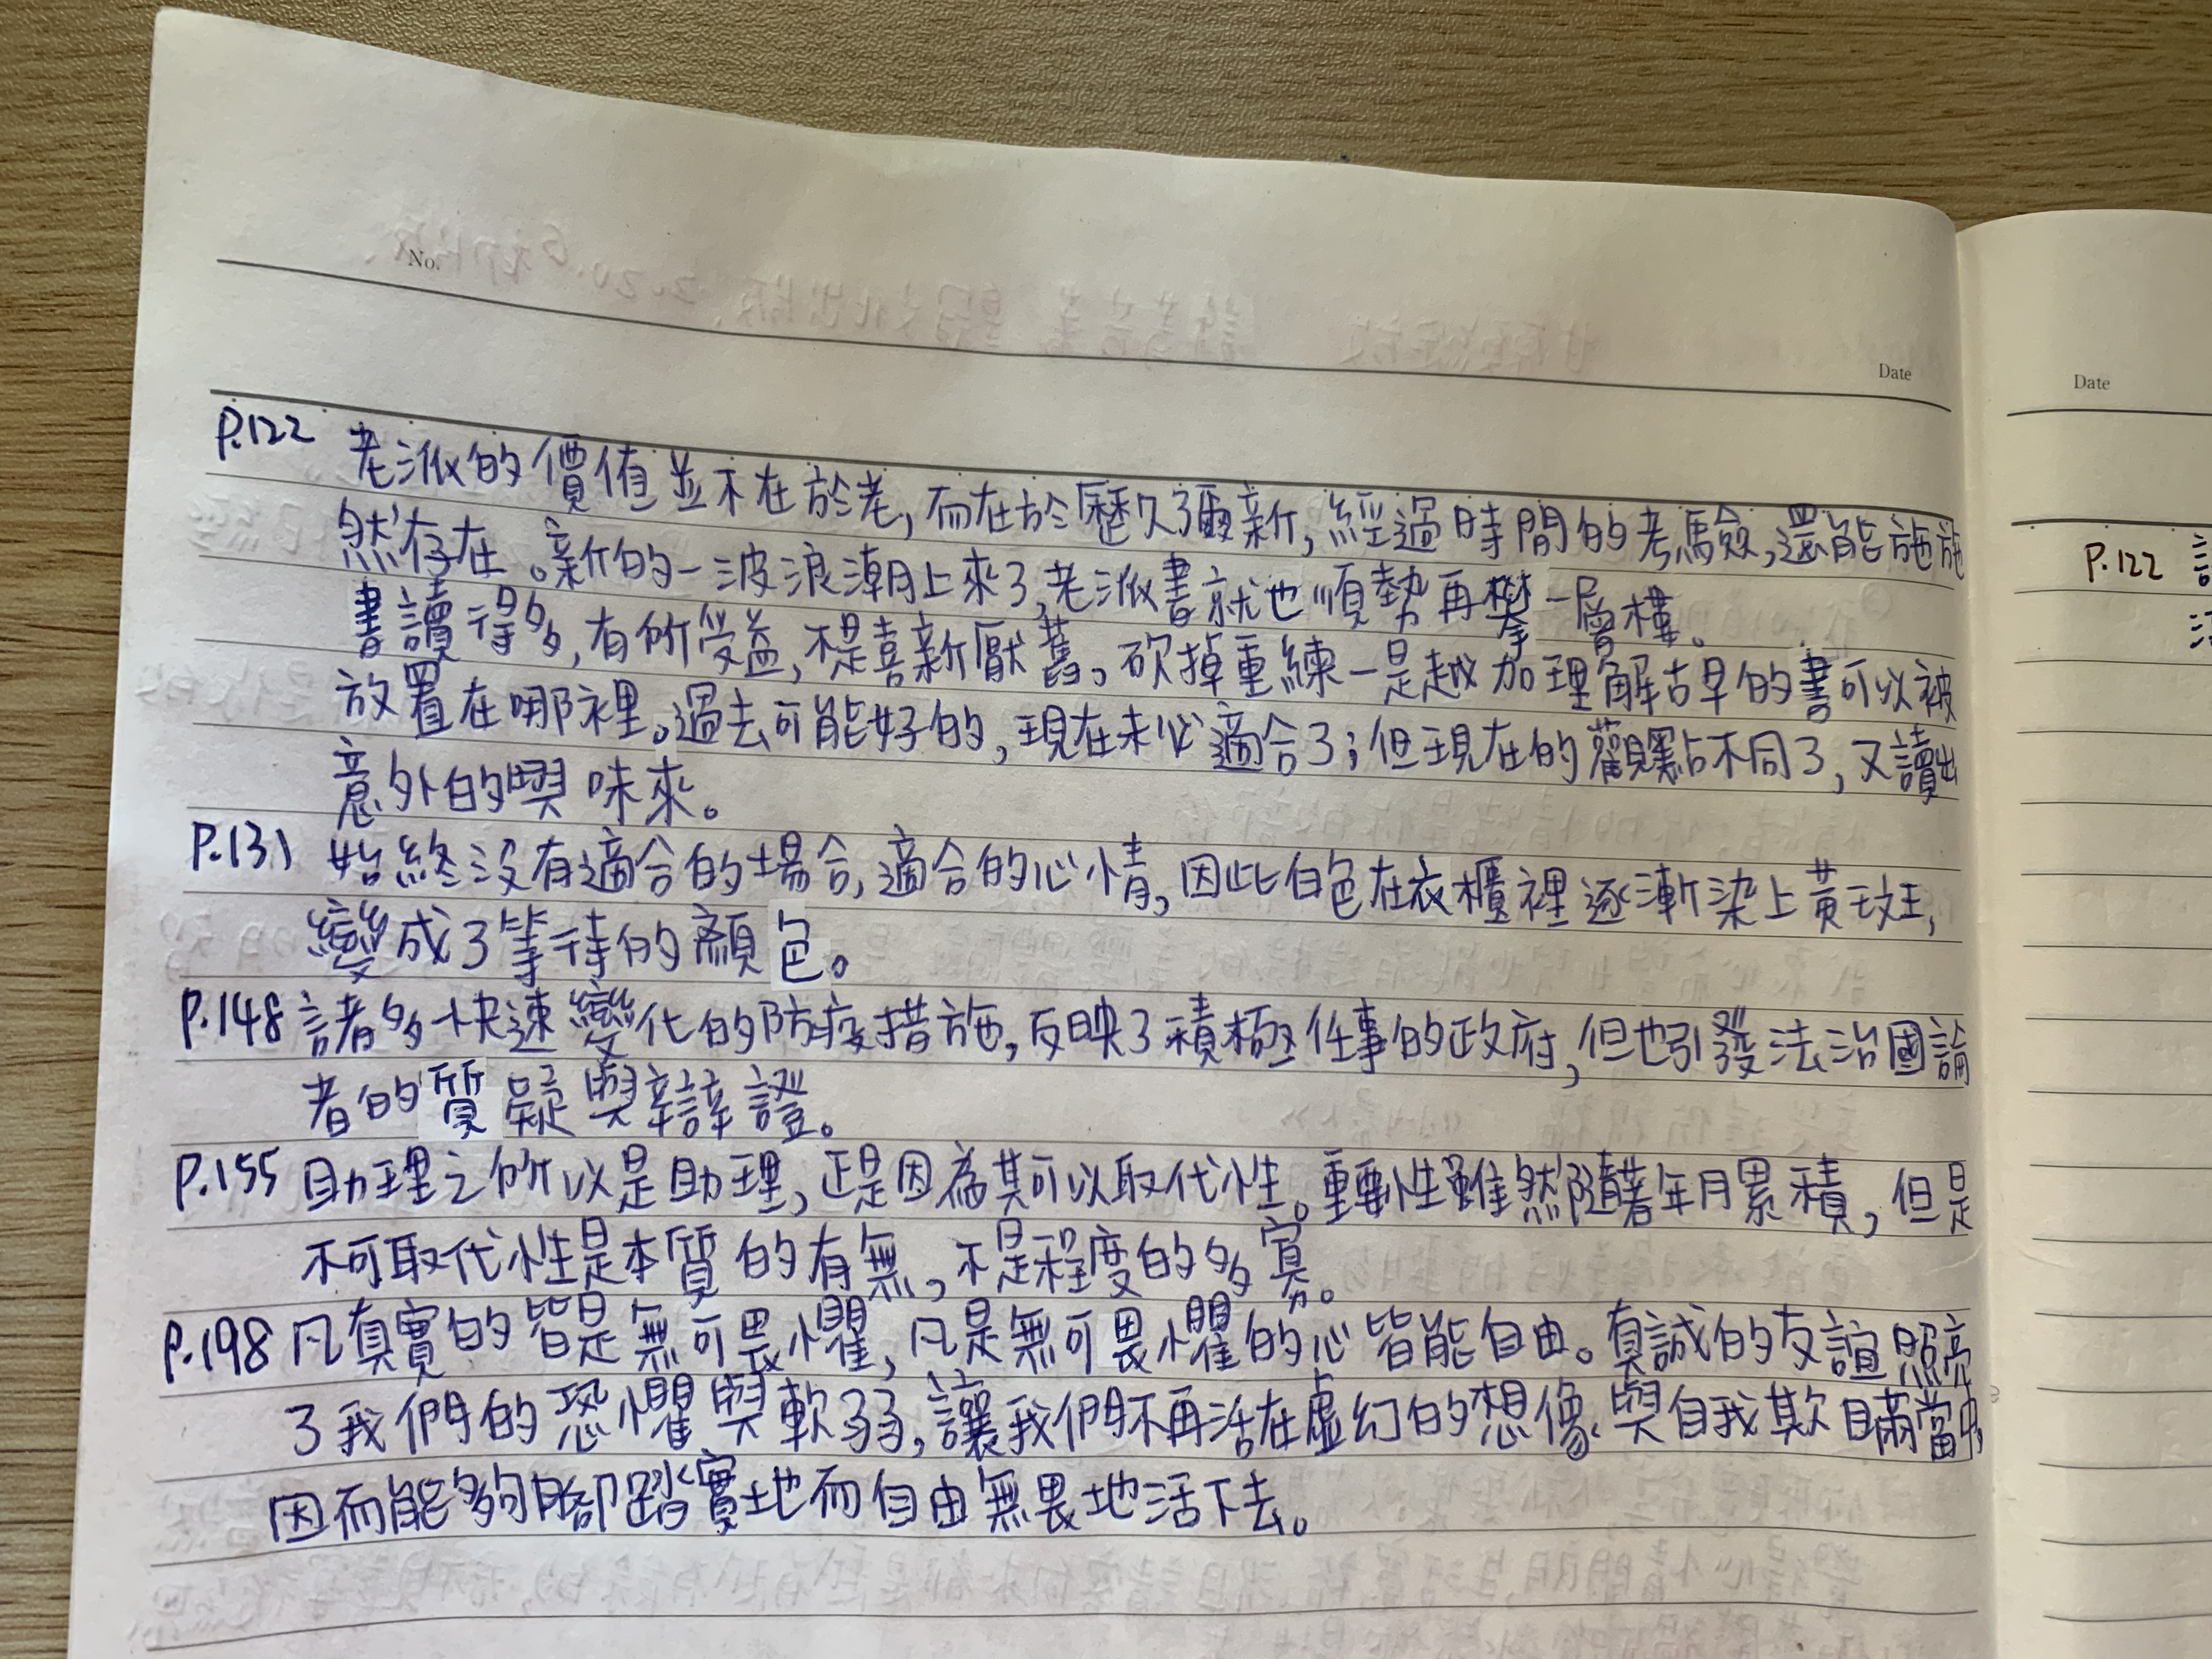 No.
Date
P.122 老派的價值並不在於老,而在於歷久彌新,經過時間的考驗,還能施施
然存在。新的一波浪潮上來了,老派書就也順勢再攀一層樓。
書讀得多,有所受益,不是喜新厭舊。砍掉重練—是越加理解古早的書可以被
放置在哪裡。過去可能好的,現在未必適合了;但現在的觀點不同了,又讀出
意外的興味來。
P.131 始終沒有適合的場合,適合的心情,因此白色在衣櫃裡逐漸染上黃斑,
變成了等待的顏色。
P.148 諸多快速變化的防疫措施,反映了積極任事的政府,但也引發法治國論
者的質疑與辯證。
P.155 助理之所以是助理,正是因為其可以取代性。重要性雖然隨著年月累積,但是
不可取代性是本質的有無,不是程度的多寡。
P.198 凡真實的皆是無可畏懼,凡是無可畏懼的心皆能自由。真誠的友誼照亮
了我們的恐懼與軟弱,讓我們不再活在虛幻的想像與自我欺瞞當中,
因而能夠腳踏實地而自由無畏地活下去。
Date
P.122